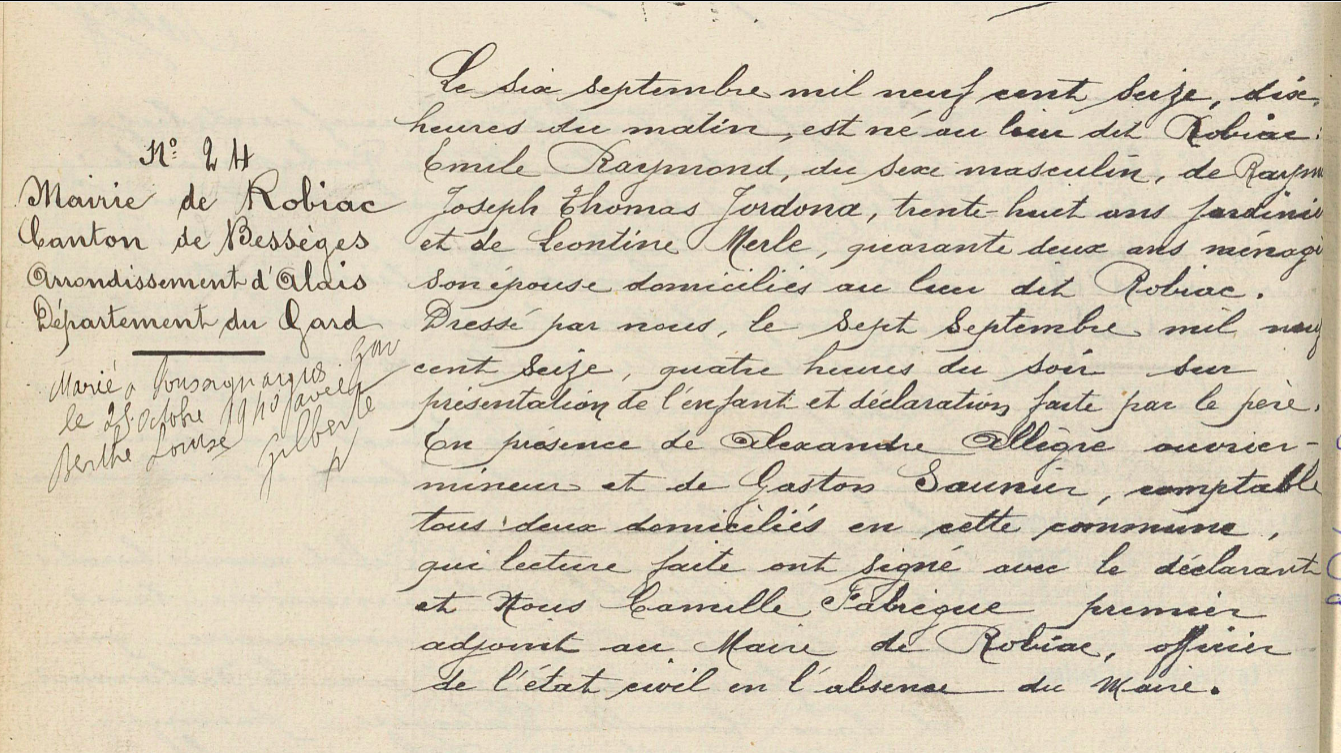 N° 24
Mairie de Robiac
Canton de Bessèges
Arrondissement d'Alais
Département du Gard
Marié à Foussignargues Gard
le 28 octobre 1940 avec
Berthe Louise Gilberte
Le six septembre mil neuf cent seize, dix
heures du matin, est né au lieu dit Robiac :
Emile Raymond, du sexe masculin, de Raym
Joseph Thomas Jordona, trente-huit ans jardinie
et de Leontine Merle, quarante deux ans ménag
son épouse domiciliés au lieu dit Robiac.
Dressé par nous, le sept Septembre mil neuf
cent seize, quatre heures du soir sur
présentation de l'enfant et déclaration faite par le père.
En présence de Alexandre Allègre ouvrier-
mineur et de Gaston Saunier, comptable
tous deux domiciliés en cette commune,
qui lecture faite ont signé avec le déclarant
et Nous Camille Fabrègue premier
adjoint au Maire de Robiac, officier
de l'état civil en l'absence du Maire.